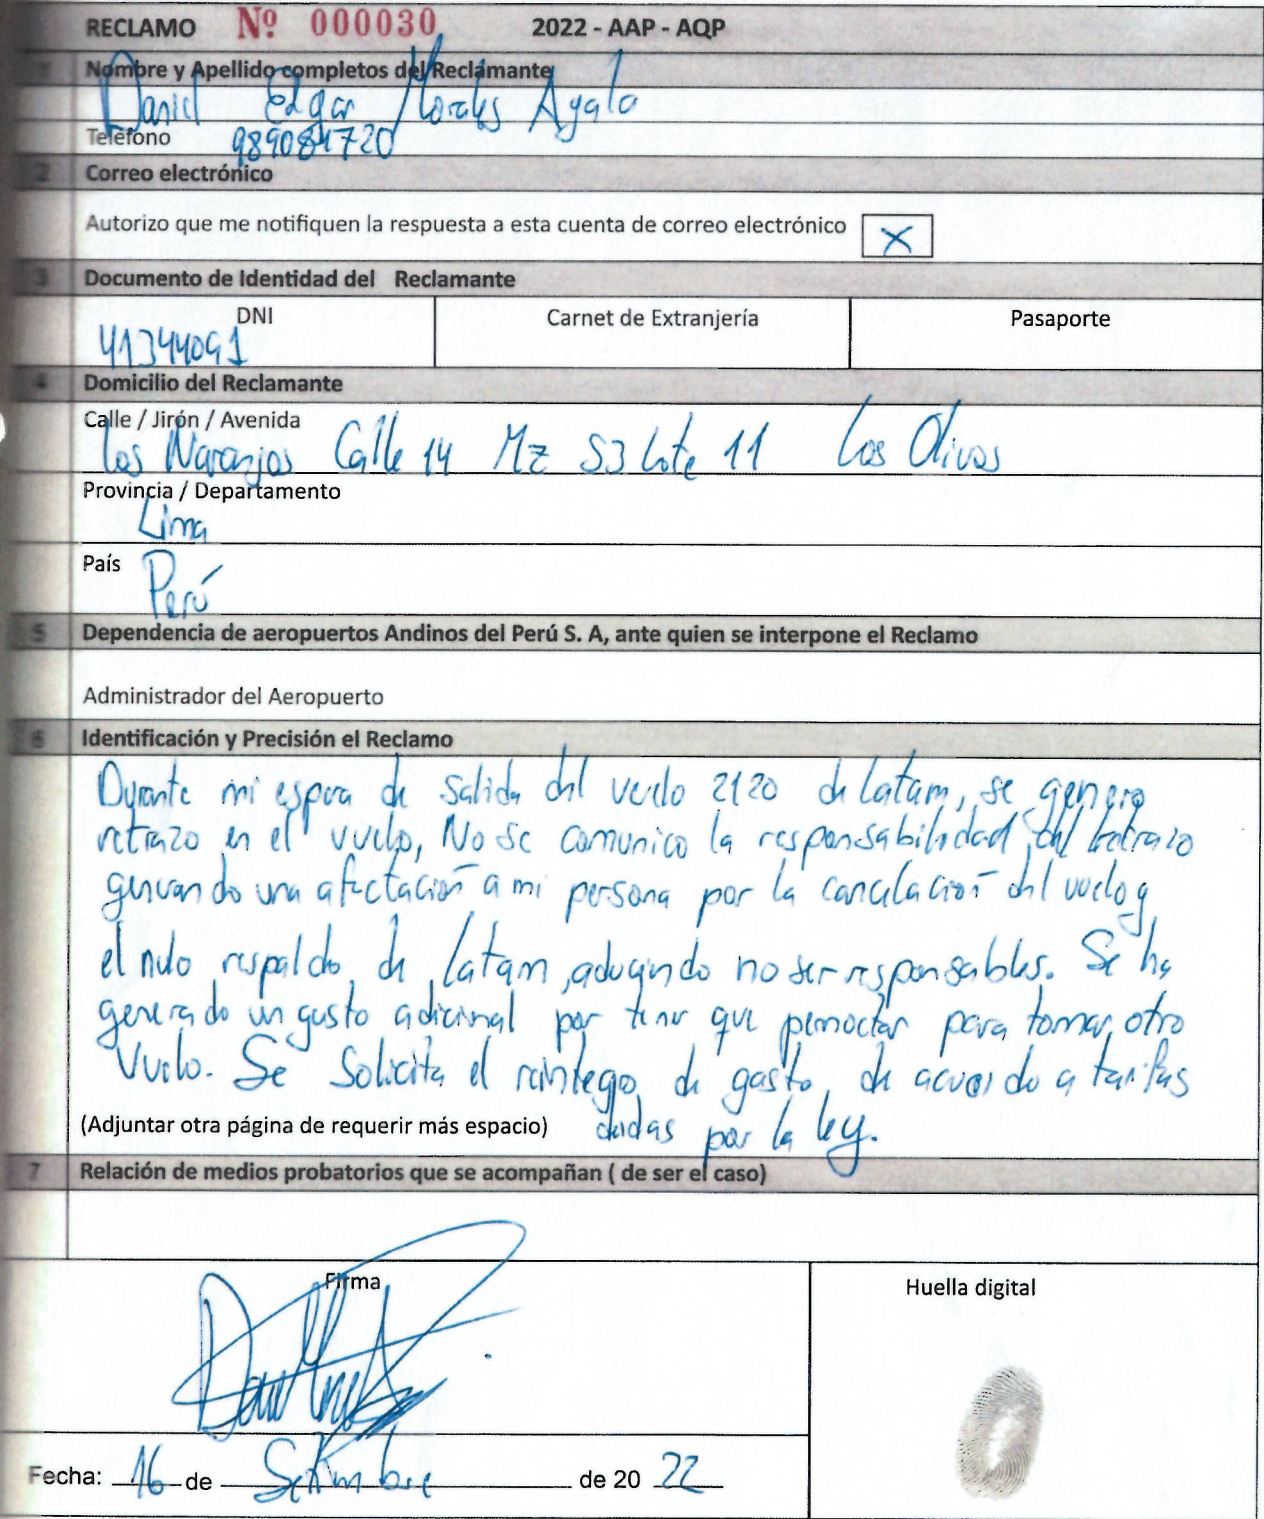 RECLAMO Nº 000030 2022 - AAP - AQP
1 Nombre y Apellido completos del Reclamante
Daniel Edgar Morales Ayala
Teléfono 989084720
2 Correo electrónico
Autorizo que me notifiquen la respuesta a esta cuenta de correo electrónico X
3 Documento de Identidad del Reclamante
DNI Carnet de Extranjería Pasaporte
41344091
4 Domicilio del Reclamante
Calle / Jirón / Avenida
Los Naranjos Calle 14 Mz S3 Lote 11 Los Olivos
Provincia / Departamento
Lima
País
Perú
5 Dependencia de aeropuertos Andinos del Perú S. A, ante quien se interpone el Reclamo
Administrador del Aeropuerto
6 Identificación y Precisión el Reclamo
Durante mi espera de salida del vuelo 2120 de Latam, se genero
retrazo en el vuelo, No se comunico la responsabilidad del retrazo
generando una afectación a mi persona por la cancelación del vuelo y
el nulo respaldo de Latam, aduciendo no ser responsables. Se ha
generado un gasto adicional por tener que pernoctar para tomar otro
Vuelo. Se Solicita el reintegro de gasto, de acuerdo a tarifas
(Adjuntar otra página de requerir más espacio) dadas por la ley.
7 Relación de medios probatorios que se acompañan ( de ser el caso)
Firma Huella digital
Fecha: 16 de Setiembre de 20 22